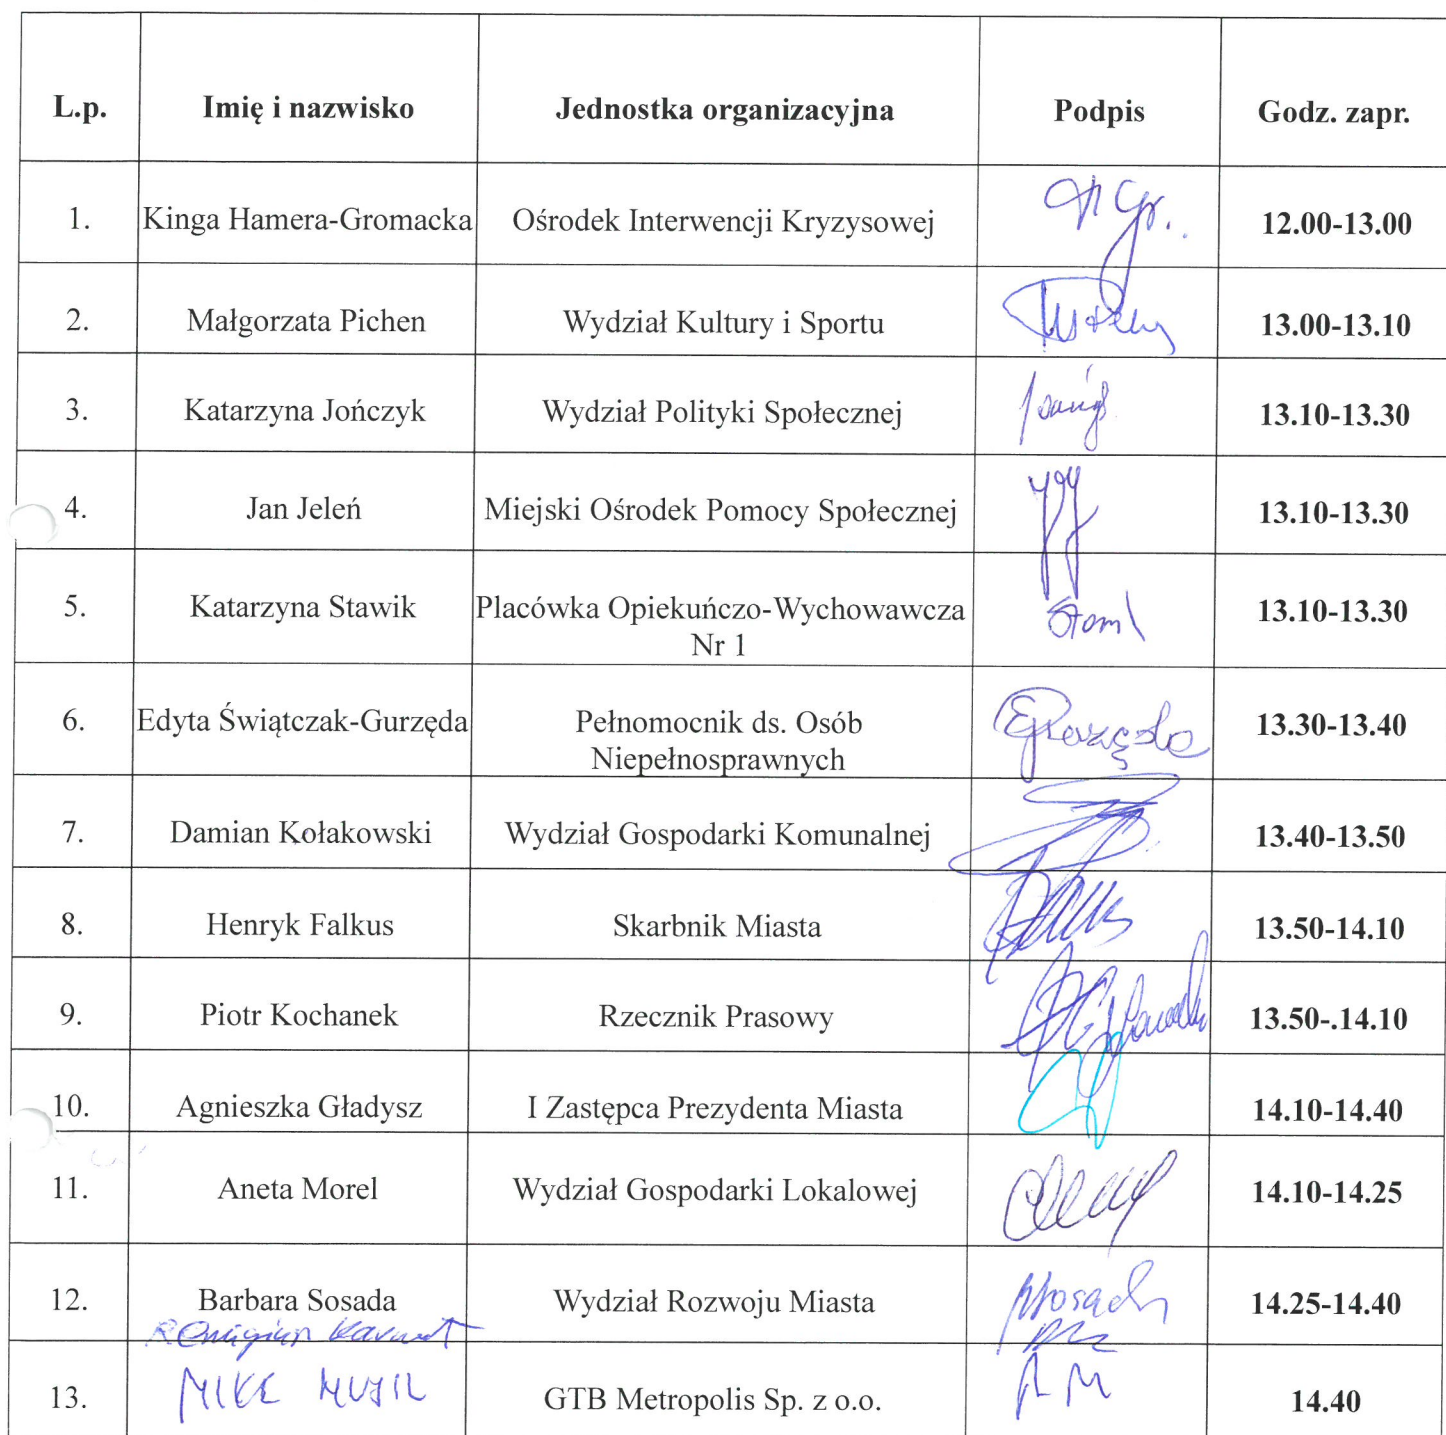 L.p. Imię i nazwisko Jednostka organizacyjna Podpis Godz. zapr.
1. Kinga Hamera-Gromacka Ośrodek Interwencji Kryzysowej 12.00-13.00
2. Małgorzata Pichen Wydział Kultury i Sportu 13.00-13.10
3. Katarzyna Jończyk Wydział Polityki Społecznej 13.10-13.30
4. Jan Jeleń Miejski Ośrodek Pomocy Społecznej 13.10-13.30
5. Katarzyna Stawik Placówka Opiekuńczo-Wychowawcza 13.10-13.30
Nr 1
6. Edyta Świątczak-Gurzęda Pełnomocnik ds. Osób 13.30-13.40
Niepełnosprawnych
7. Damian Kołakowski Wydział Gospodarki Komunalnej 13.40-13.50
8. Henryk Falkus Skarbnik Miasta 13.50-14.10
9. Piotr Kochanek Rzecznik Prasowy 13.50-.14.10
10. Agnieszka Gładysz I Zastępca Prezydenta Miasta 14.10-14.40
11. Aneta Morel Wydział Gospodarki Lokalowej 14.10-14.25
12. Barbara Sosada Wydział Rozwoju Miasta 14.25-14.40
13. MIKE GTB Metropolis Sp. z o.o. 14.40